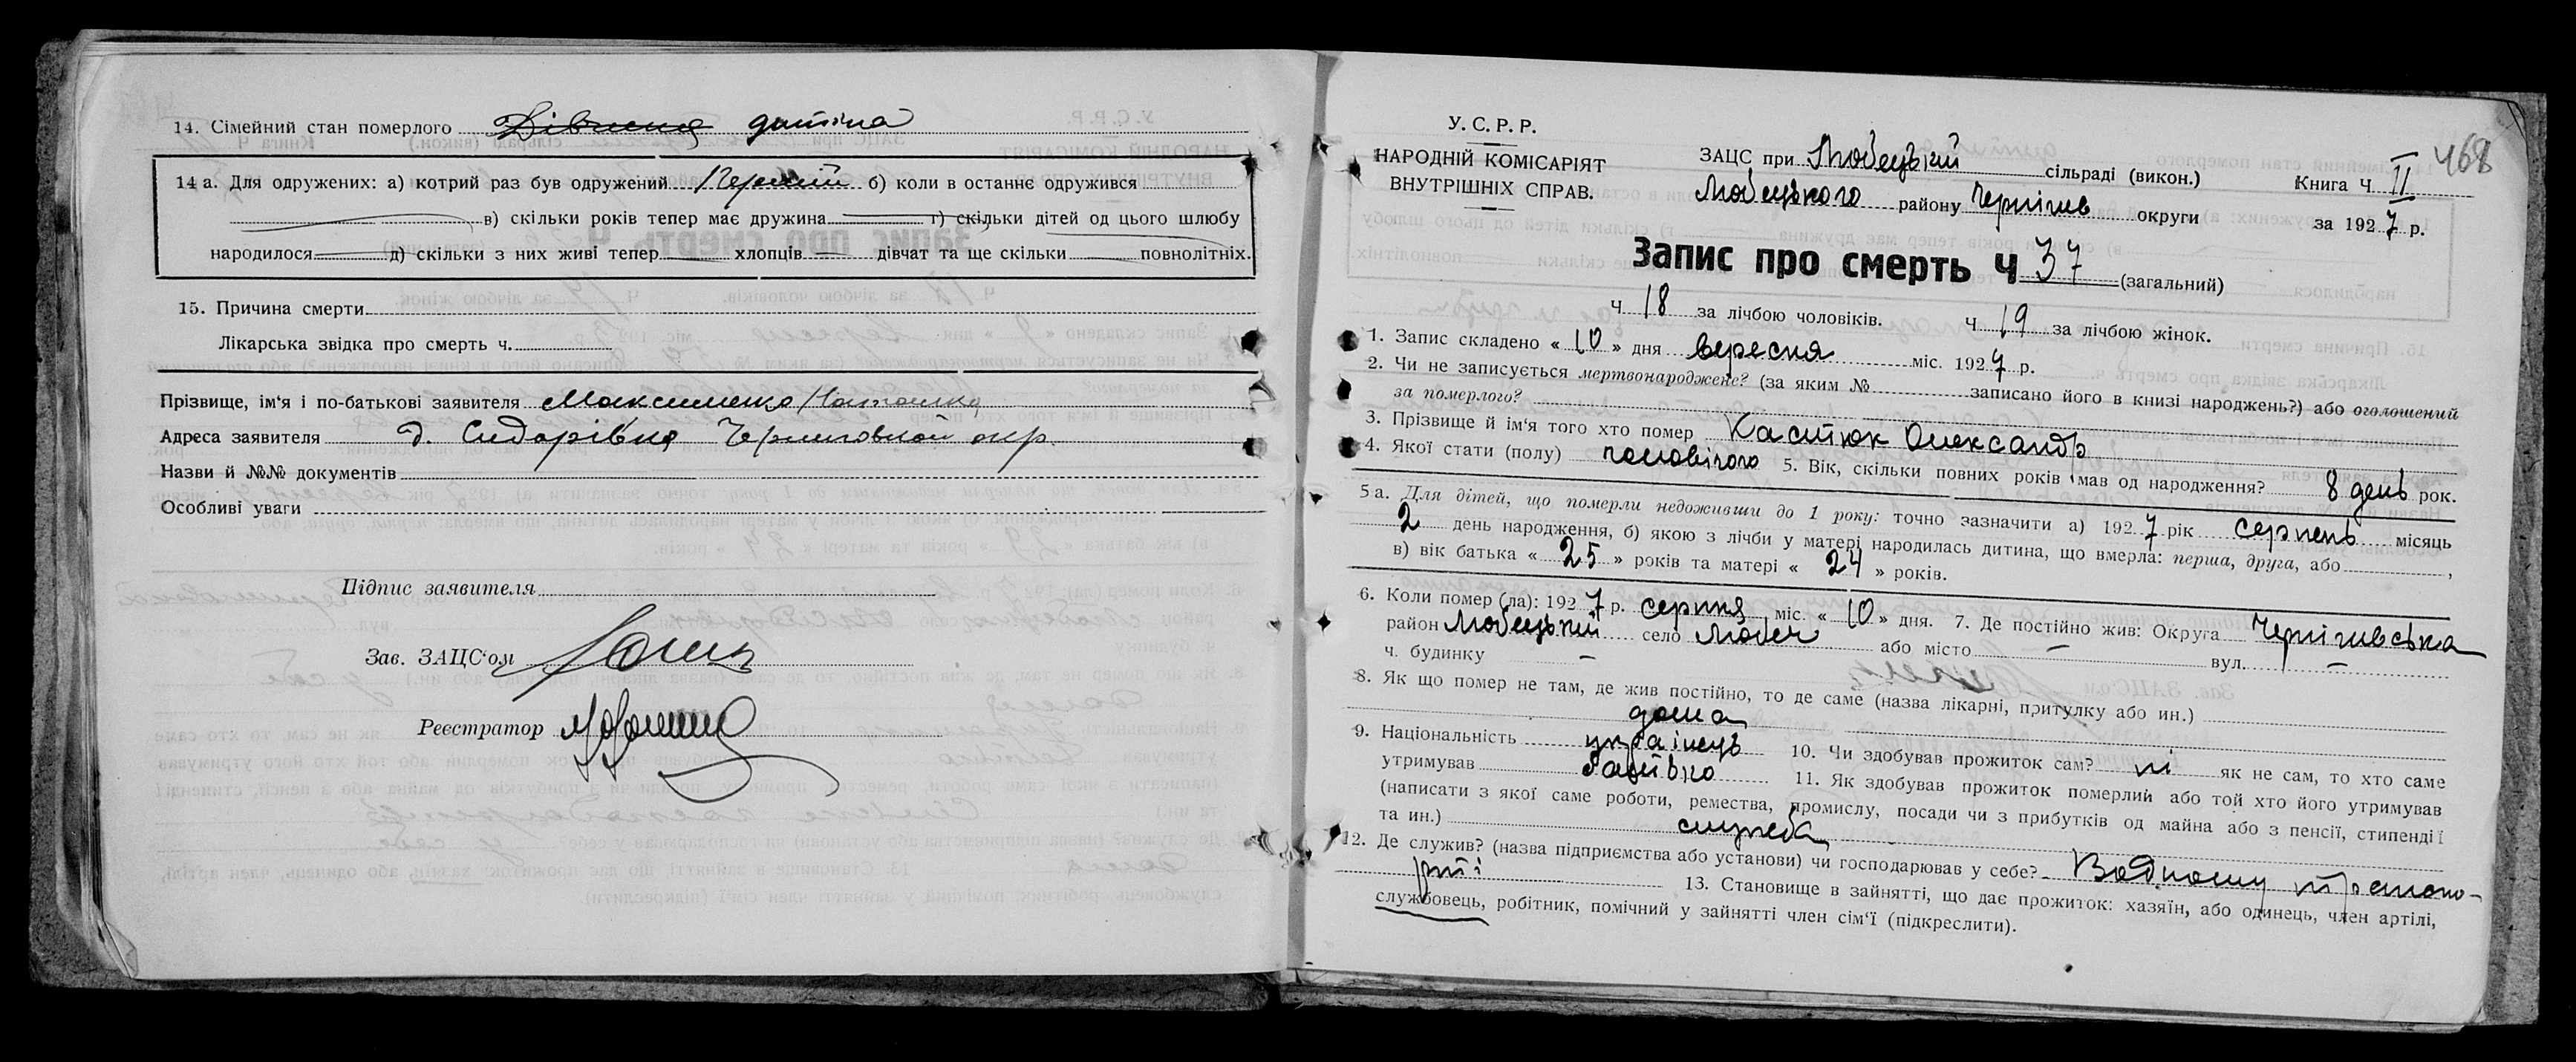 14. Сімейний стан померлого Дівчина дитина
14 а. Для одружених: а) котрий раз був одружений Перший б) коли в останнє одружився
в) скільки років тепер має дружина г) скільки дітей од цього шлюбу
народилося д) скільки з них живі тепер хлопців дівчат та ще скільки повнолітніх.
15. Причина смерти
Лікарська звідка про смерть ч.
Прізвище, ім'я і по-батькові заявителя Максименко Наташка
Адреса заявителя д. Сидорівка Черниговской окр.
Назви й №№ документів
Особливі уваги
Підпис заявителя
Зав. ЗАЦС'ом
Реєстратор
468
У. С. Р. Р.
НАРОДНІЙ КОМІСАРІЯТ
ВНУТРІШНІХ СПРАВ.
ЗАЦС при Любецький сільраді (викон.) Книга Ч. II
Любецького району Чернігів округи за 1927 р.
Запис про смерть Ч 37 (загальний)
Ч 18 за лічбою чоловіків. Ч 19 за лічбою жінок.
1. Запис складено « 10 » дня вересня міс. 1927 р.
2. Чи не записується мертвонароджене? (за яким № записано його в книзі народжень?) або оголошений
за померлого?
3. Прізвище й ім'я того хто помер Костюк Олександр
4. Якої стати (полу) чоловічого 5. Вік, скільки повних років мав од народження? 8 день рок.
5 а. Для дітей, що померли недоживши до 1 року: точно зазначити а) 1927 рік серпень місяць
2 день народження, б) якою з лічби у матері народилась дитина, що вмерла: перша, друга, або ,
в) вік батька « 25 » років та матері « 24 » років.
6. Коли помер (ла): 1927 р. серпня міс. « 10 » дня. 7. Де постійно жив: Округа Чернігивська
район Любецький село Любеч або місто — вул. —
ч. будинку —
8. Як що помер не там, де жив постійно, то де саме (назва лікарні, притулку або ин.)
дома
9. Національність українець 10. Чи здобував прожиток сам? ні як не сам, то хто саме
утримував батько 11. Як здобував прожиток померлий або той хто його утримував
(написати з якої саме роботи, ремества, промислу, посади чи з прибутків од майна або з пенсії, стипендії
та ин.) служба
12. Де служив? (назва підприємства або установи) чи господарював у себе? Водному транспо-
рті 13. Становище в зайнятті, що дає прожиток: хазяїн, або одинець, член артілі,
службовець, робітник, помічний у зайнятті член сім'ї (підкреслити).